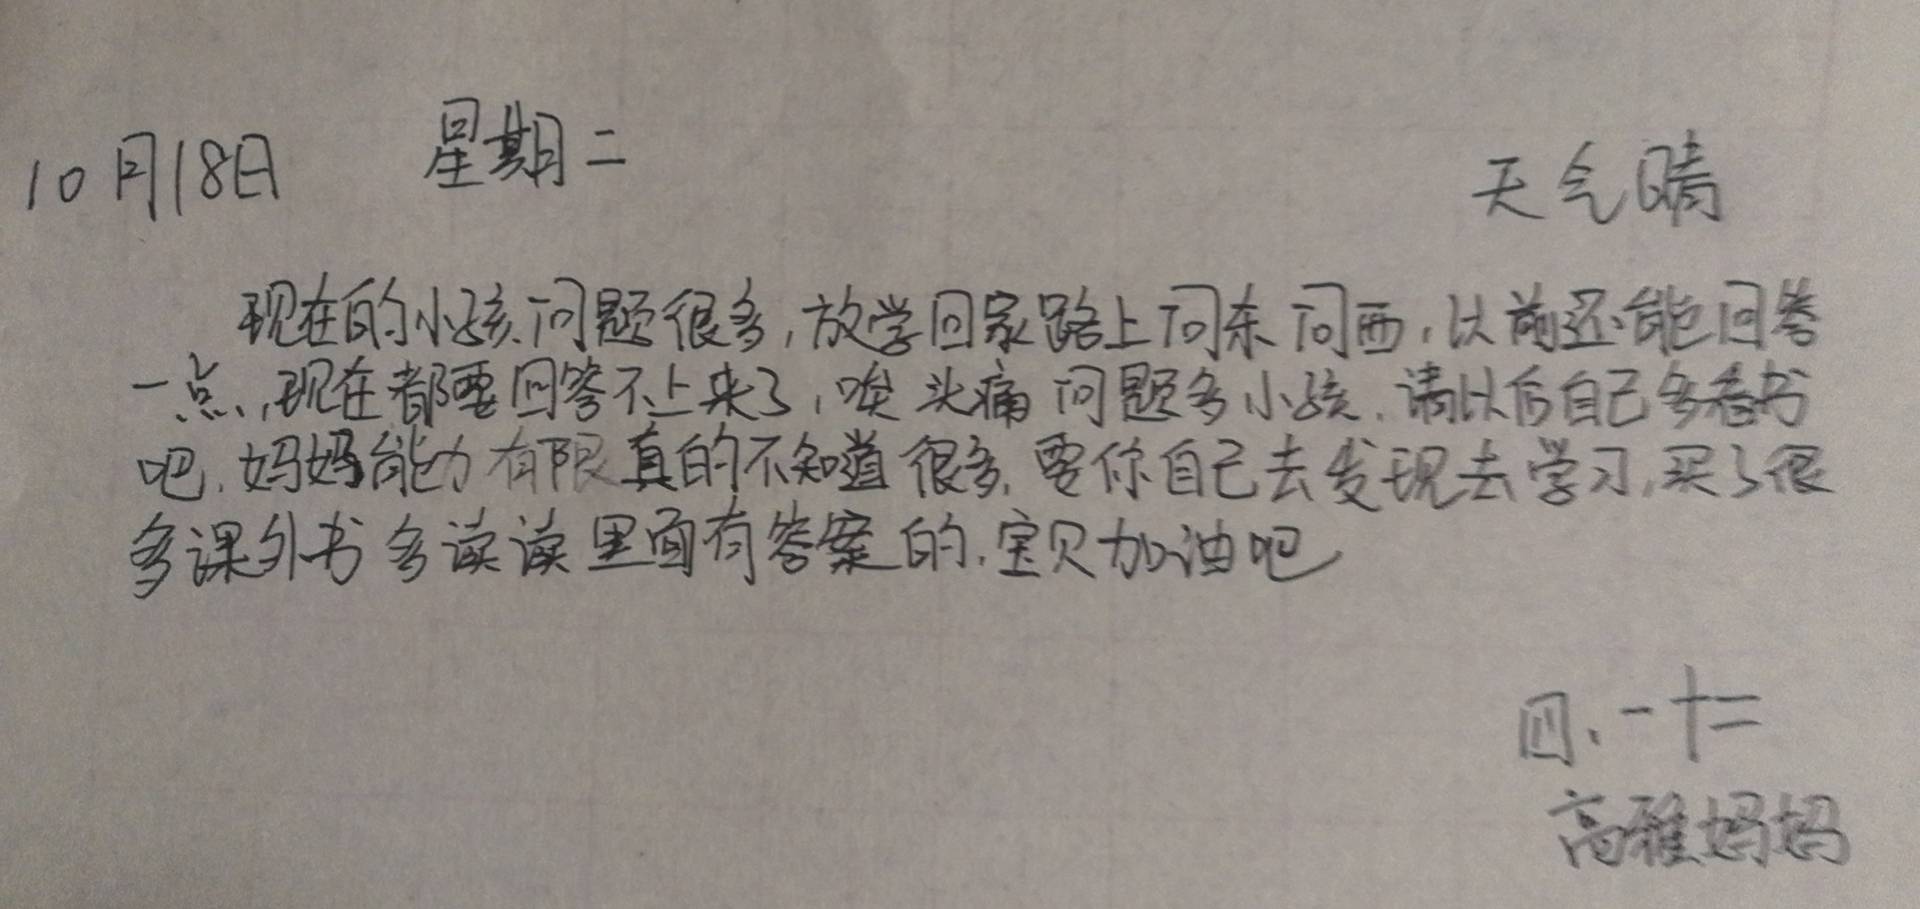 10月18日 星期二 天气晴
现在的小孩问题很多,放学回家路上问东问西,以前还能回答
一点,现在都要回答不上来了,唉头痛问题多小孩.请以后自己多看书
吧.妈妈能力有限真的不知道很多.要你自己去发现去学习,买了很
多课外书多读读里面有答案的.宝贝加油吧
四、一十二
高雅妈妈